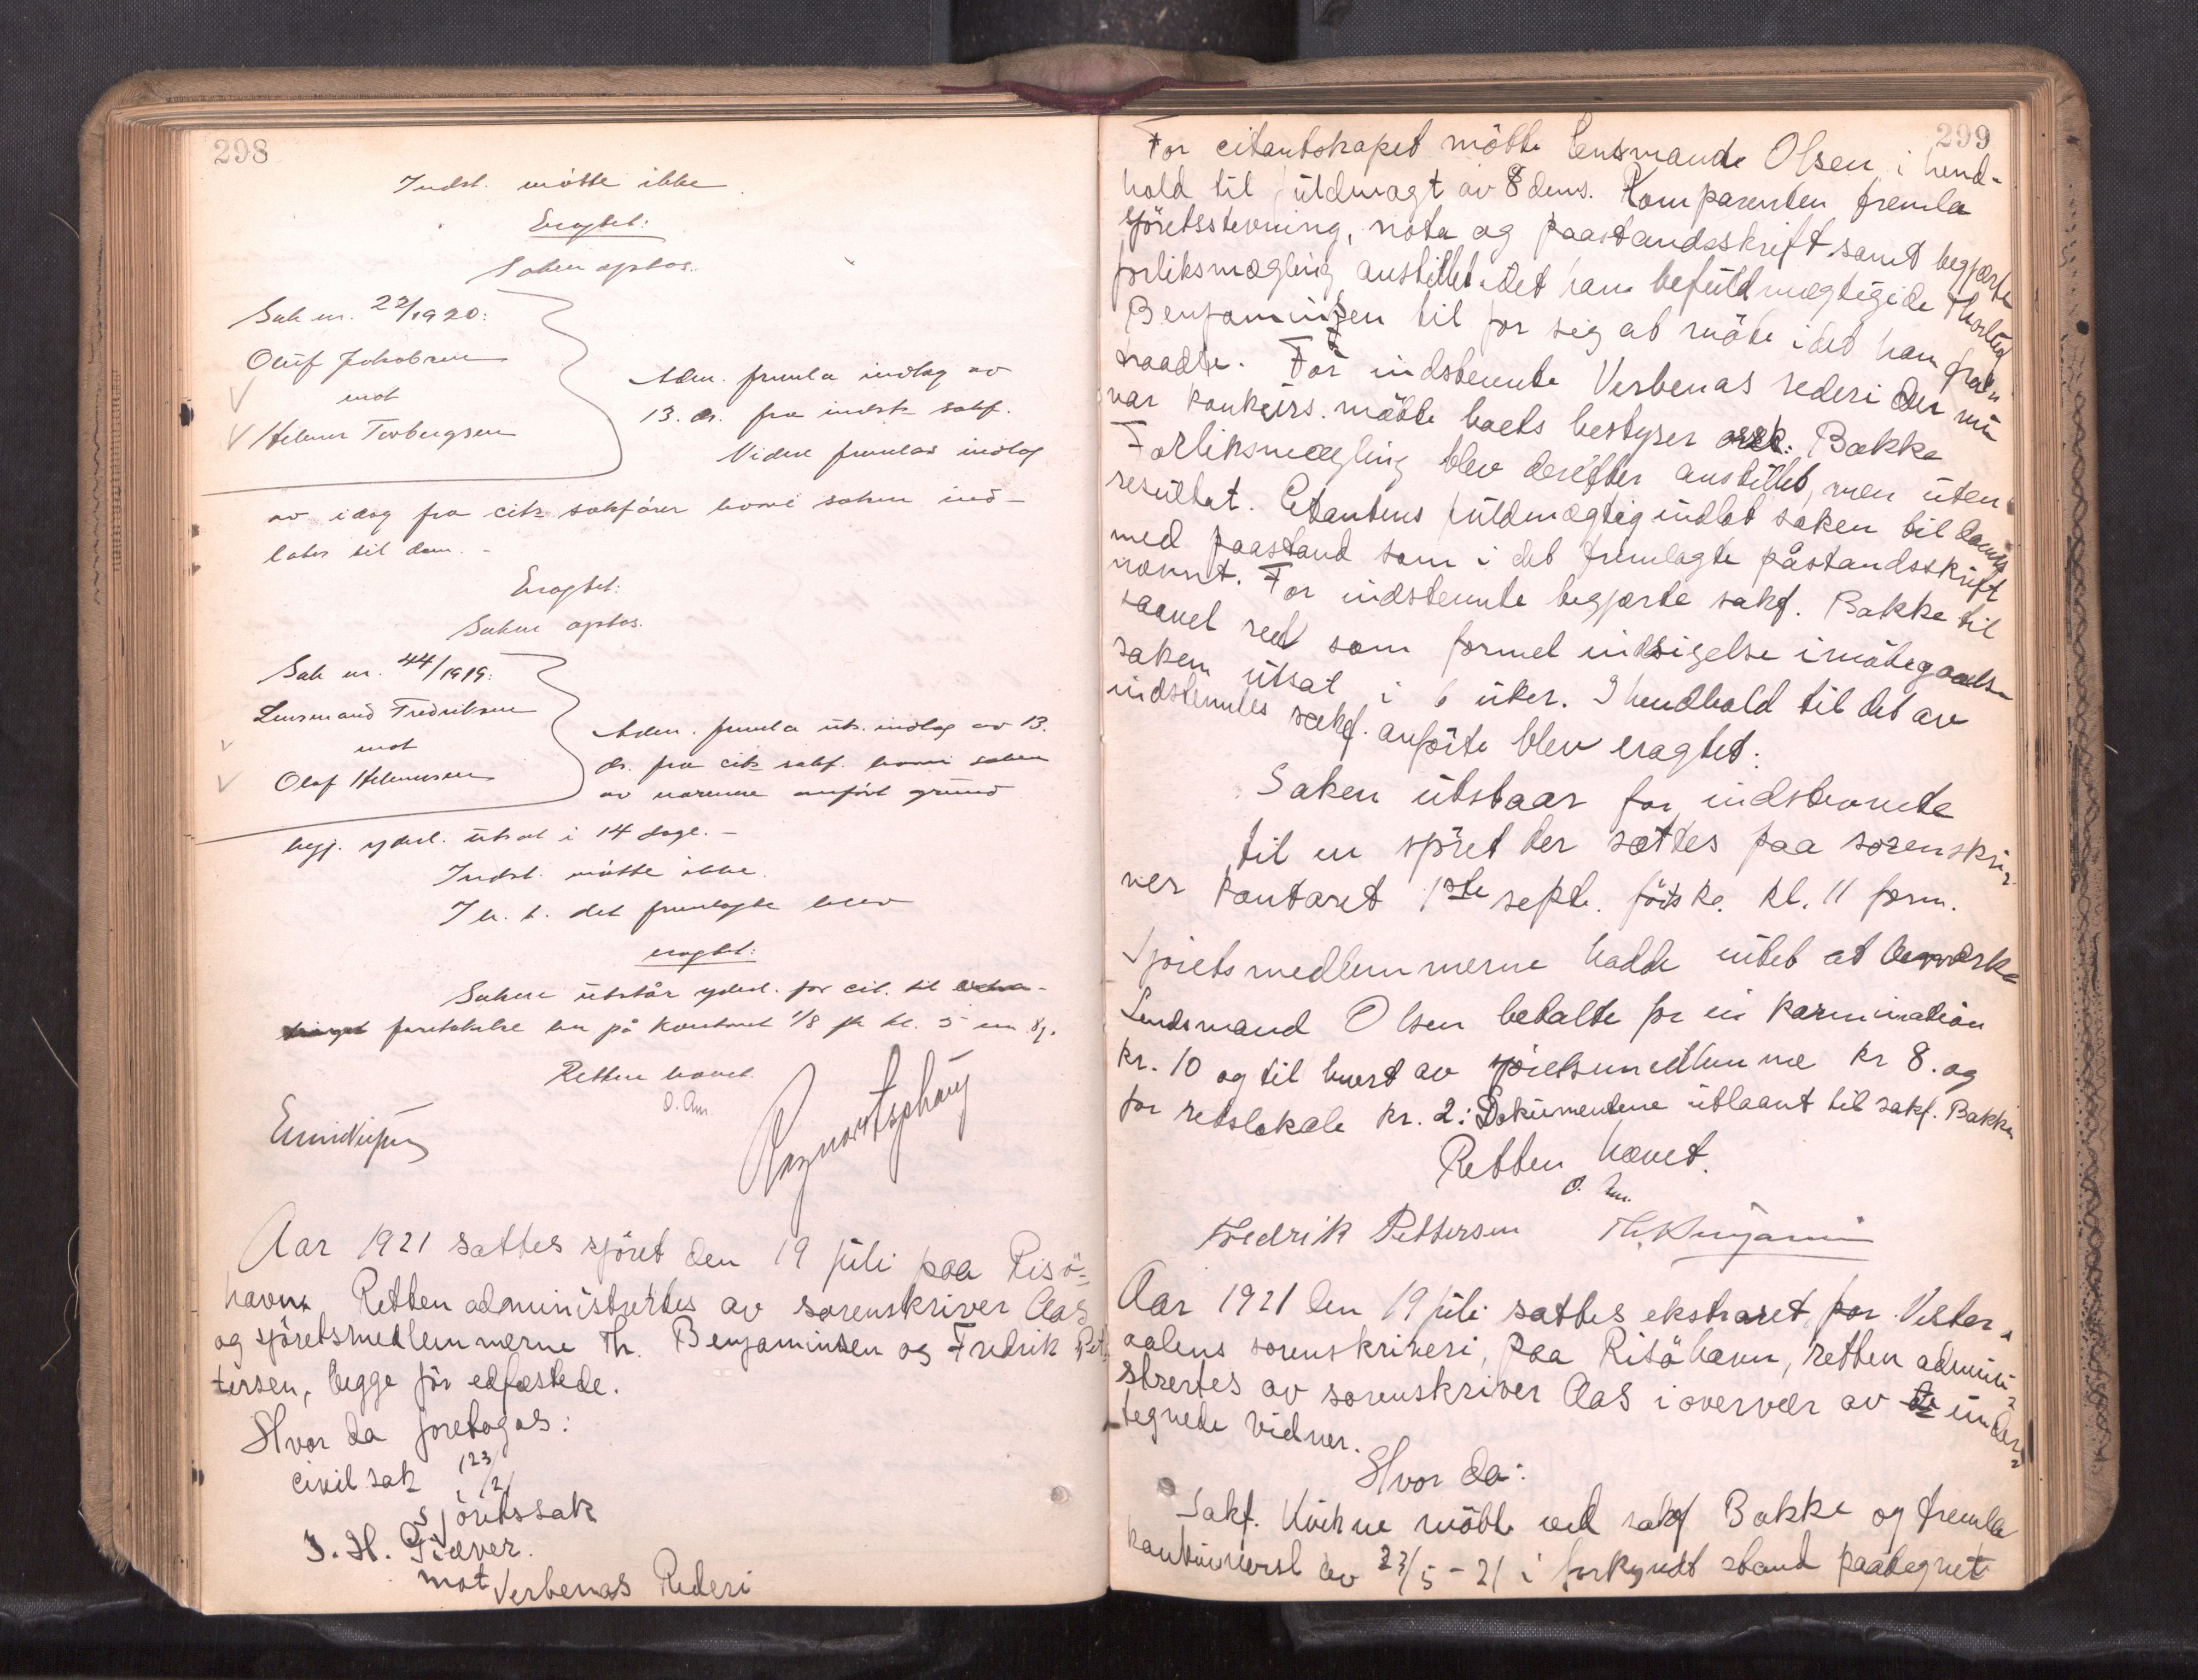 298
Indst. møtte ikke.
Eragtet:
Saken optas.
Sak nr. 22/1920:
Oluf Jakobsen
mot
Helmer Torbergsen
Adm. fremla indlæg av
13. ds. fra indst. sakf.
Videre fremlas indlæg
av idag fra cit. sakfører hvori saken ind-
lates til dom. -
Eragtet:
Saken optas.
Sak nr. 44/1919:
Lensmand Fredriksen
mot
Olaf Helmersen
Adm. fremla uts. indlæg av 13.
ds. fra cit. sakf. hvori saken
av nærmere anført grund
begj. yderl. utsat i 14 dage. -
Indst. møtte ikke.
I h. t. det fremlagte blev
eragtet:
Saken utstår yderl. for cit. til
foretakelse her på kontoret 1/8 kl. 5 em.
Retten hævet.
O. Aas.
Aar 1921 sattes sjöret den 19 juli paa Risö-
havn. Retten administrertes av sorenskriver Aas
og sjöretsmedlemmerne Th. Benjaminsen og Fredrik Pet-
tersen, begge för edfæstede.
Hvor da foretoges:
civil sak 123/21
Sjöretssak
J. H. Giæver.
mot
Verbenas Rederi
299
For citantskapet mötte lensmand Olsen i hend-
hold til fuldmagt av 8 dens. Komparenten fremla
sjöretsstevning, nota og paastandsskrift samt begjærte
forliksmægling anstillet idet han befuldmægtigede Thorleif
Benjaminsen til for sig at möte idet han fra-
traadte. For indstevnte Verbenas rederi der nu
var konkurs. mötte boets bestyrer Bakke
Forliksmægling blev derefter anstillet, men uten
resultat. Citantens fuldmægtig indlot saken til doms
med paastand som i det fremlagte påstandsskrift
nævnt. For indstevnte begjærte sakf. Bakke til
saavel reel som formel indsigelse imötegaaelse
saken utsat i 6 uker. I hendhold til det av
indstevntes sakf. anförte blev eragtet:
Saken utstaar for indstevnte
til en sjöret der sættes paa sorenskri-
ver kontoret 1ste septbr. förstk. kl. 11 form.
Sjöretsmedlemmerne hadde intet at bemærke
Lendsmand Olsen betalte for in karmination
kr. 10 og til hvert av sjöretsmedlemme kr 8. og
for retslokale kr. 2: Dokumentene utlaant til sakf. Bakke
Retten hævet.
O. Aas.
Fredrik Pettersen Th. Benjamin
Aar 1921 den 19 juli sattes ekstraret for Vester-
aalens sorenskriveri, paa Risöhavn, retten admini-
strertes av sorenskriver Aas i overvær av de under-
tegnede vidner.
Hvor da:
Sakf. Kühne mötte ved sakf Bakke og fremla
av 23/5-21 i forkyndt stand paategnet